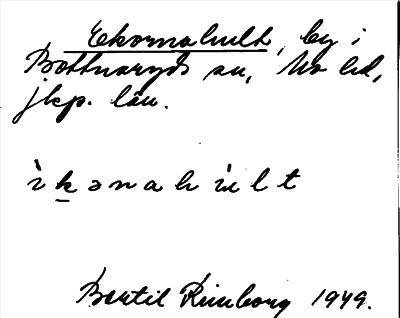 Ekornahult, by i
Bottnaryds sn, Mo hd,
jkp. län.
ìkənahùlt
Bertil Rimborg 1949.